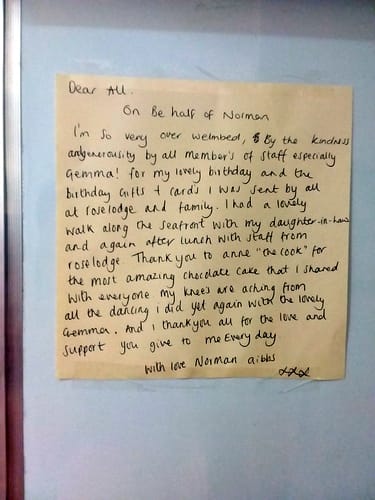 Dear All.
On Be half of Norman
I'm so very over welmbed, By the kindness
and generousity by all member's of staff especially
Gemma! for my lovely birthday and the
birthday Gifts + cards I was sent by all
at roselodge and family. I had a lovely
walk along the seafront with my daughter-in-law
and again after lunch with staff from
roselodge. Thank you to anne "the cook" for
the most amazing chocolate cake that I shared
with everyone my knees are aching from
all the dancing i did yet again with the lovely
Gemma. And i thank you all for the love and
support you give to me Every day
With love Norman Gibbs
xxx